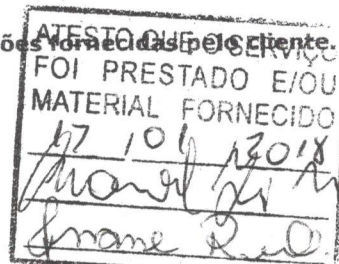 ões fornecidas pelo cliente.
ATESTO QUE O SERVIÇO
FOI PRESTADO E/OU
MATERIAL FORNECIDO
17 / 01 / 2018